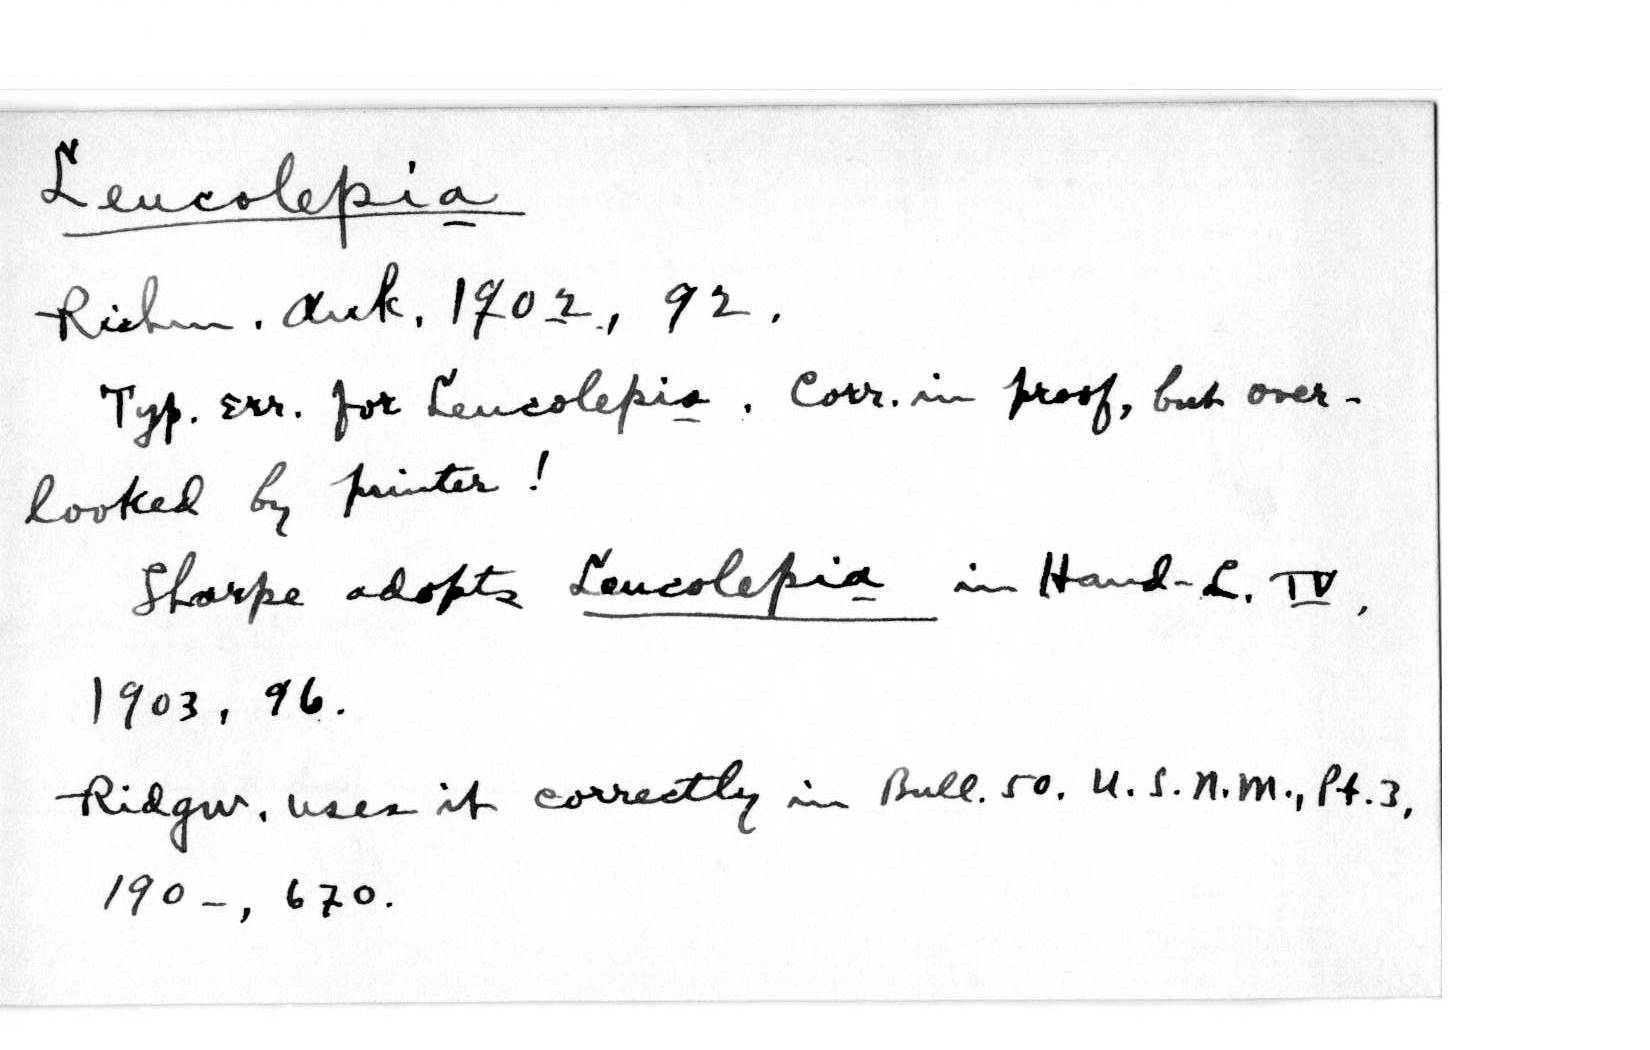 Leucolepia
Richm. Auk, 1902, 92.
Typ. err. for Leucolepis. Corr. in proof, but over-
looked by printer!
Sharpe adopts Leucolepia in Hand-L. IV,
1903, 96.
Ridgw. uses it correctly in Bull. 50. U.S.N.M., Pt. 3,
190–, 670.